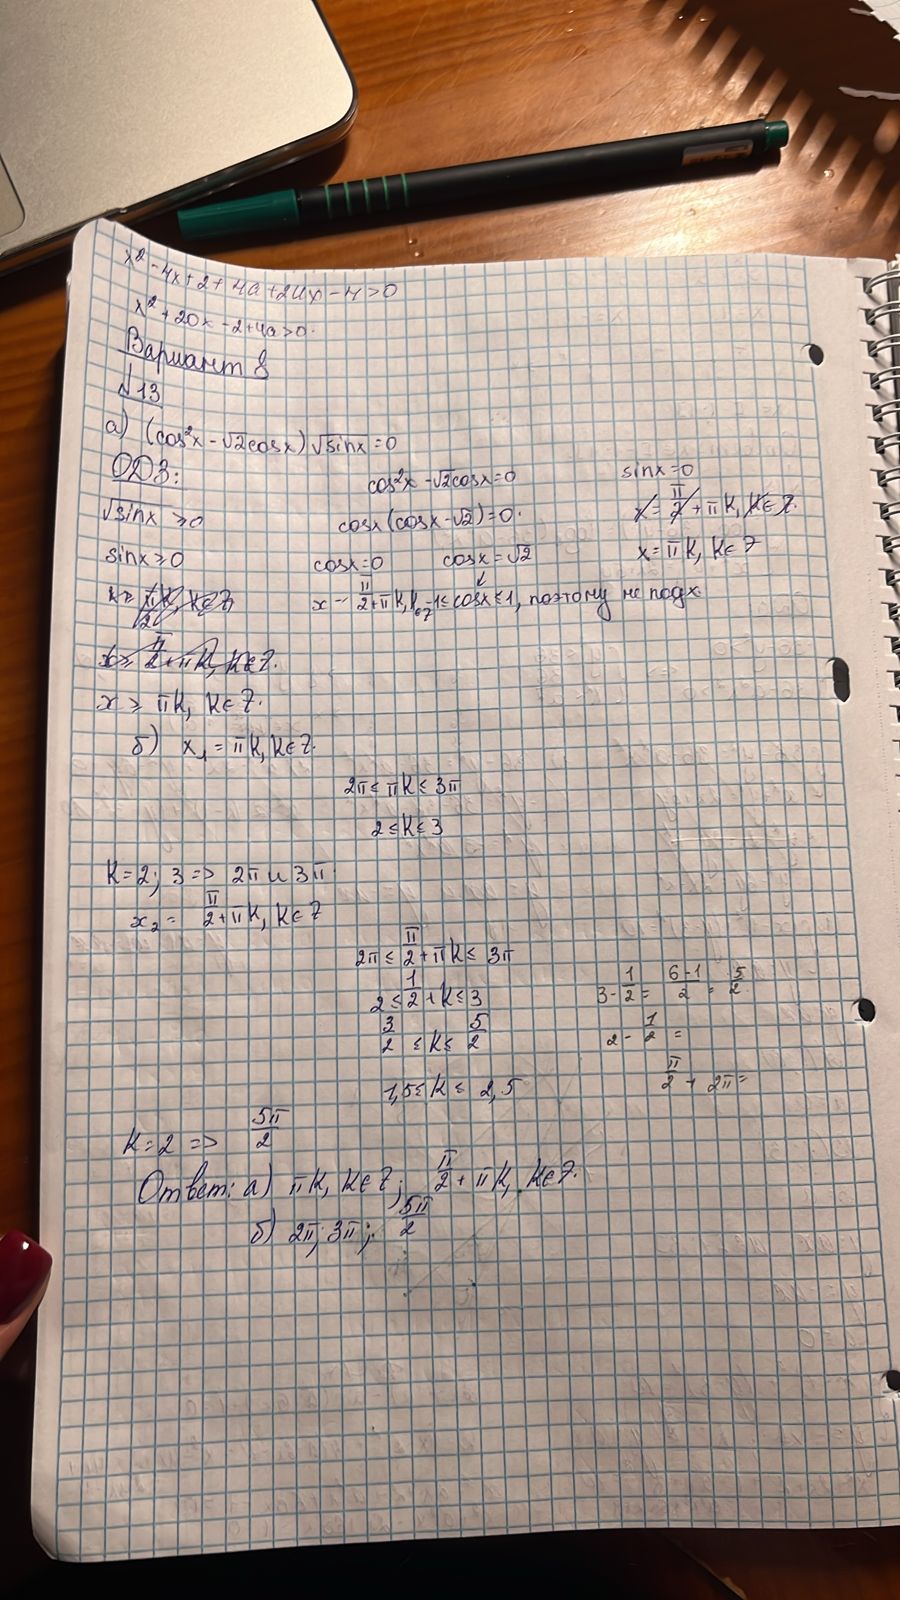 x² - 4x + 2 + 4a + 2ax - 4 > 0
x² + 2ax - 2 + 4a > 0.
Вариант 8
№13
а) (cos²x - √2cosx)√sinx = 0
ОДЗ:
√sinx ≥ 0
sinx ≥ 0
x ≥ πk/2, k∈Z
x ≥ π/2 + πk, k∈Z.
x ≥ πk, k∈Z.
cos²x - √2cosx = 0
cosx(cosx - √2) = 0.
cosx = 0 cosx = √2
x = π/2 + πk, k∈Z -1 ≤ cosx ≤ 1, поэтому не подх.
sinx = 0
x = π/2 + πk, k∈Z.
x = πk, k∈Z
б) x₁ = πk, k∈Z.
2π ≤ πk ≤ 3π
2 ≤ k ≤ 3
k = 2; 3 => 2π и 3π
x₂ = π/2 + πk, k∈Z
2π ≤ π/2 + πk ≤ 3π
2 ≤ 1/2 + k ≤ 3
3/2 ≤ k ≤ 5/2
1,5 ≤ k ≤ 2,5
3 - 1/2 = 6-1/2 = 5/2.
2 - 1/2 =
π/2 + 2π =
k = 2 => 5π/2
Ответ: а) πk, k∈Z; π/2 + πk, k∈Z.
б) 2π; 3π; 5π/2